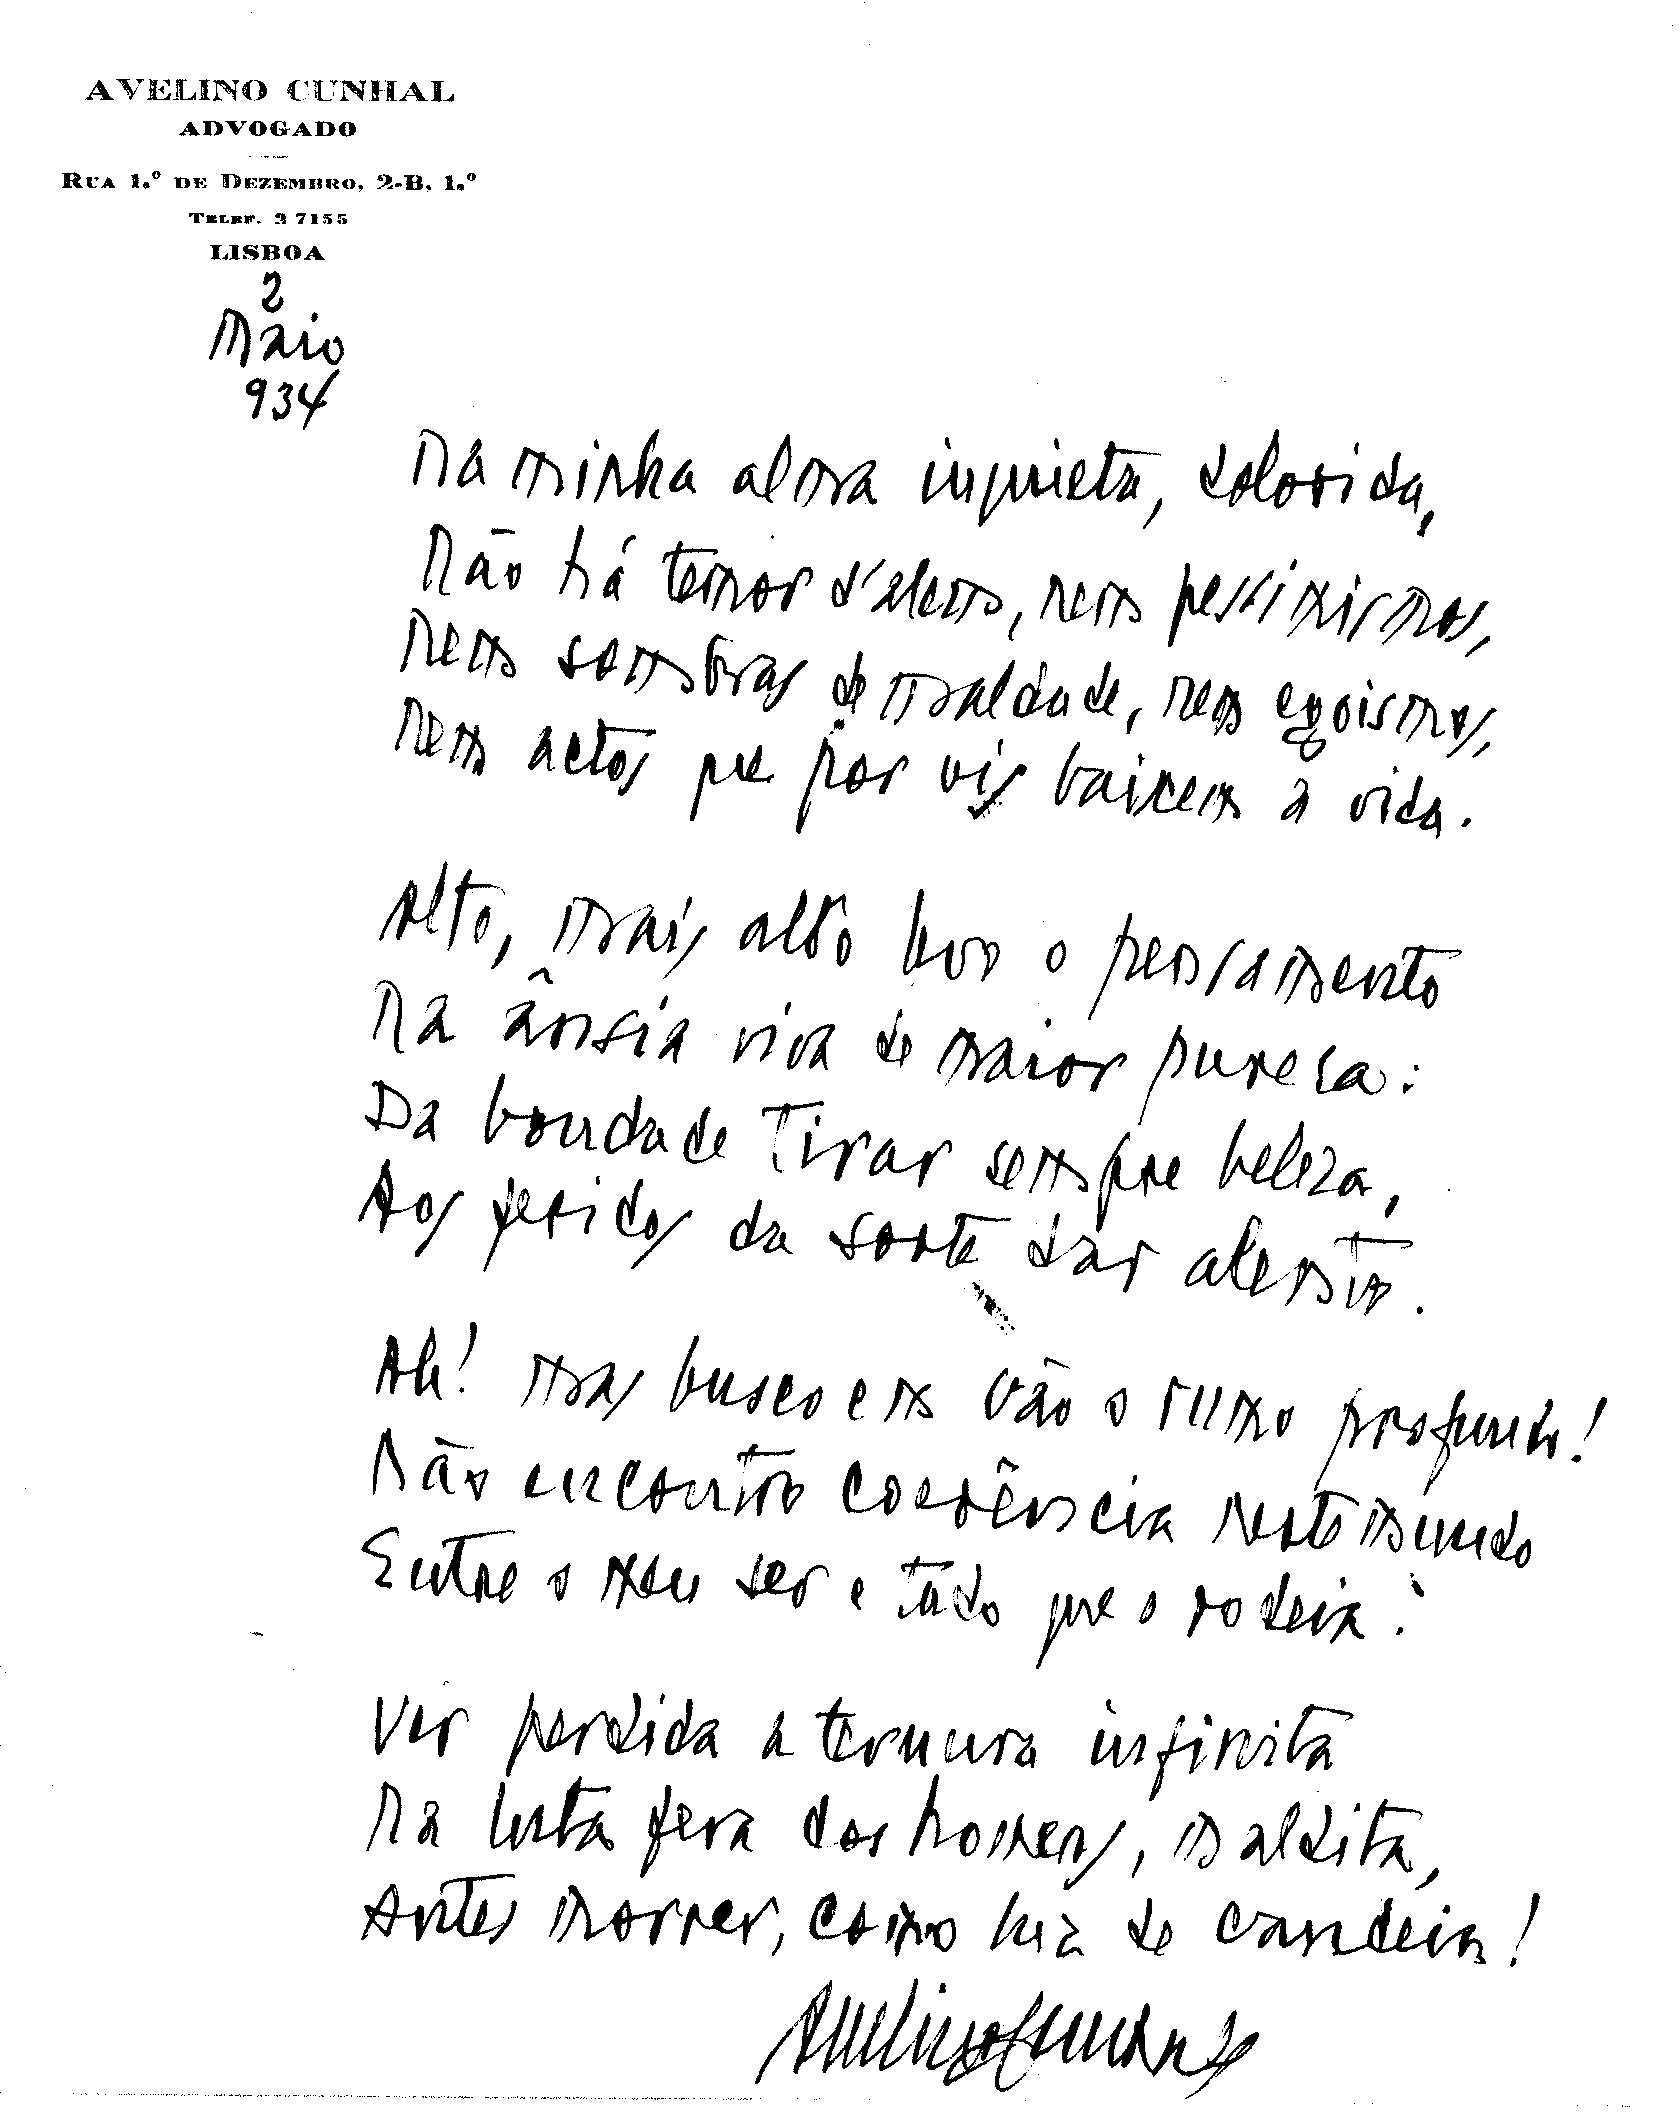 AVELINO CUNHAL
ADVOGADO
RUA 1.º DE DEZEMBRO, 2-B, 1.º
TELEF. 2 7155
LISBOA
2
Maio
934
Na minha alma inquieta, dolorida,
Não há temor d'alem, nem pessimismos,
Nem sombras de maldade, nem egoismos,
Nem actos que por vis baixem a vida.
Alto, mais alto levo o pensamento
Na ânsia viva de maior puresa:
Da bondade tirar sempre beleza,
Aos feridos da sorte dar alento.
Ah! mas busco em vão o rumo profundo!
Não encontro coerência neste mundo
Entre o meu ser e tudo que o rodeia:
Ver perdida a ternura infinita
Na luta fera dos homens, maldita,
Antes morrer, como luz de candeia!
Avelino Cunhal